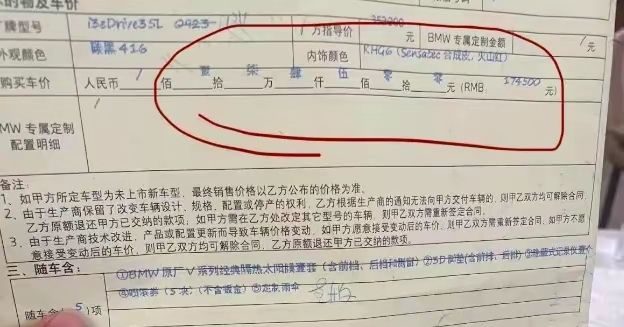 的物及车价
牌型号 i3eDrive35L 0923 厂方指导价 353900 元 BMW 专属定制金额 / 元
外观颜色 碳黑416 内饰颜色 KHG6 (Sensatec 合成皮, 火山红)
购买车价 人民币 / 佰 壹 拾 柒 万 肆 仟 伍 佰 零 拾 零 元 (RMB: 174500 元)
MW 专属定制
配置明细
备注:
1、如甲方所定车型为未上市新车型，最终销售价格以乙方公布的价格为准。
2、由于生产商保留了改变车辆设计、规格、配置或停产的权利，乙方根据生产商的通知无法向甲方交付车辆的，则甲乙双方均可解除合同，
乙方原额退还甲方已交纳的款项；如甲方需在乙方处改定其它型号的车辆，则甲乙双方需重新签定合同。
3、由于生产商技术改进、产品或配置更新而导致车辆价格变动，如甲方愿意接受变动后的车价，则甲乙双方需重新签定合同，如甲方不愿
意接受变动后的车价，则甲乙双方均可解除合同，乙方原额退还甲方已交纳的款项。
三、随车含： ①BMW原厂V系列经典隔热太阳膜壹套（含前档、后档和侧窗）②3D脚垫（含前排、后排）③隐藏式记录仪壹个
随车含（5）项 （5次）（不含钣金）⑤定制雨伞